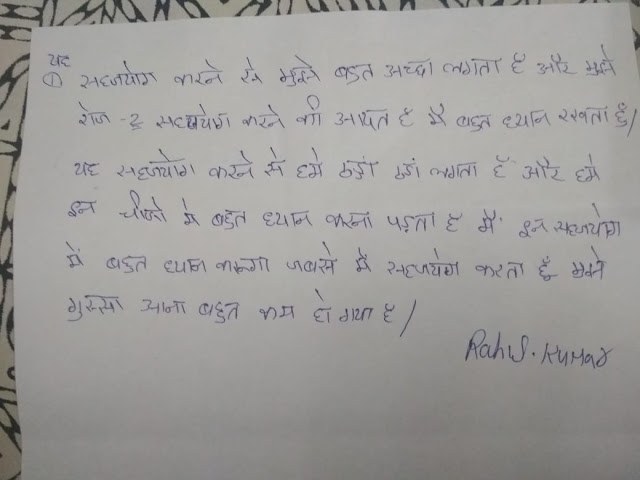 यह
① सहजयोग करने से मुझे बहुत अच्छा लगता है और मुझे
रोज-2 सहजयोग करने की आदत है मै बहुत ध्यान रखता हूँ/
यह सहजयोग करने से हमे ठंडा ठंडा लगता है और हमे
इन चीजो मे बहुत ध्यान करना पड़ता है मैं इन सहजयोग
में बहुत ध्यान करूगा जबसे मै सहजयोग करता हूँ मुझे
गुस्सा आना बहुत कम हो गया है/
Rahul. Kumar